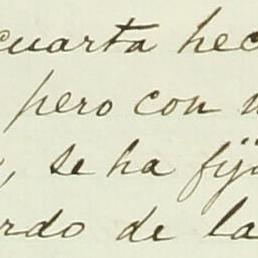 cuarta hec
pero con
, se ha fij
rdo de la